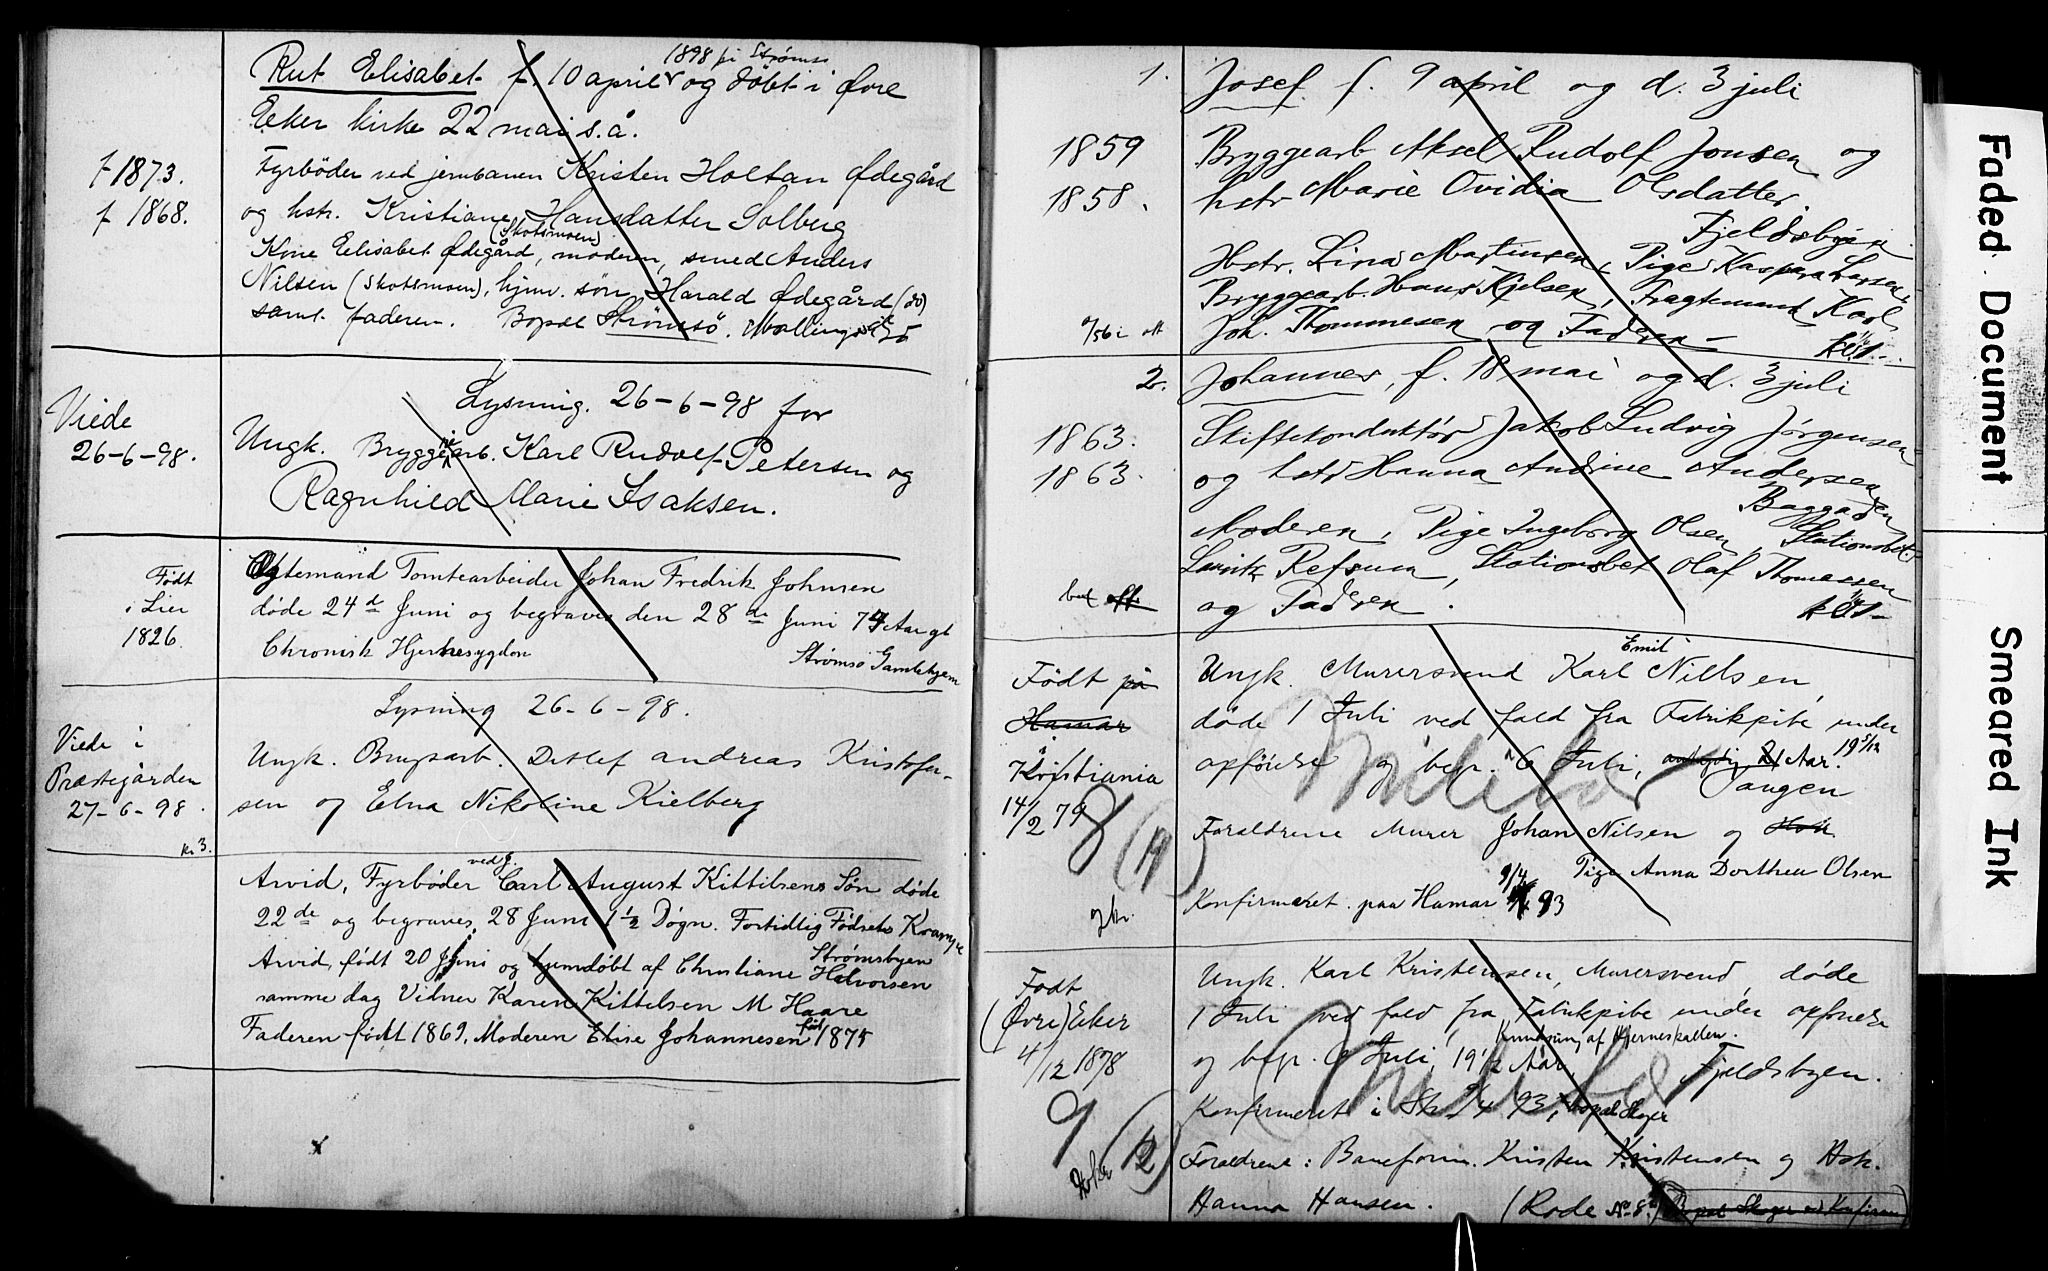 1898 på Strømsø
Rut Elisabet f. 10 april og döbt i Øvre
Eker kirke 22 mai s.å.
f 1873.
f 1868.
Fyrböder ved jernbanen Kristen Holtan Ødegård
og hstr. Kristiane Hansdatter Solberg
(Skotsmoen)
Kone Elisabet Ødegård, moderen, smed Anders
Nilsen (Skotsmoen), hjmv. søn Harald Ødegård (do)
samt faderen. Bopæl Strømsö.
Viede
26-6-98.
Lysning. 26-6-98 for
Ungk. Bryggearb. Karl Rudolf Petersen og
Ragnhild Marie Isaksen.
Født
i Lier
1826.
Ægtemand Tomtearbeider Johan Fredrik Johnsen
døde 24de Juni og begraves den 28de Juni 74 Aar gl
Chronisk Hjernesygdom
Strømsø Gamlehjem
Viede i
Præstegården
27-6-98.
kr 3.
Lysning 26-6-98.
Ungk. Brugsarb. Detlef Andreas Kristofer-
sen og Edna Nikoline Kielberg
ved J.
Arvid, Fyrbøder Carl August Kittilsens Søn døde
22de og begraves 28 Juni 1½ Døgn. Fortidlig Fødsel Krampe
Strømsbyen
Arvid, født 20 Juni og hjemdøbt af Christiane Halvorsen
samme dag Vidner Karen Kittelsen M Haare
Faderen født 1869, Moderen Elise Johannesen født 1875
1.
Josef f. 9 april og d. 3 juli
1859
1858.
Bryggearb Aksel Rudolf Jonsen og
hstr Marie Ovidia Olsdatter.
Fjeldsbyen.
Hstr. Lina Martinsen, Pige Kaspara Larsen,
Bryggearb. Hans Kjelsen, Fragtemand Karl
Joh. Thommesen og Faderen
2.
Johannes, f. 18 mai og d. 3 juli
1863.
1863.
Skiftekonduktör Jakob Ludvig Jørgensen
og hstr Hanna Andrine Andersen
Baggården
Moderen, Pige Ingeborg Olsen, Stationsbet.
Lauritz Refsum, Stationsbet Olaf Thomassen
og Faderen.
Født på
Hamar
Kristiania
14/2 79
8 (A)
Emil
Ungk. Murersvend Karl Nilsen,
døde 1 Juli ved fald fra Fabrikpibe under
opförelse og begr. 6 Juli, 21 Aar. 19 5/12
Tangen
Forældrene Murer Johan Nilsen og
Pige Anna Dorthea Olsen
Konfirmeret paa Hamar 9/4 93
Født
(Øvre) Eker
4/12 1878
9 (12)
Ungk. Karl Kristensen, Murersvend, døde
1 Juli ved fald fra Fabrikpibe under opförelse
Knusning af Hjerneskallen.
og begr. 6 Juli, 19½ Aar,
Fjeldsbyen.
Konfirmeret i Sk. 2/4 93, bopæl Skoger
Forældrene: Baneform. Kristen Kristensen og Hsk.
Hanna Hansen. (Rode No. 8.)
Bopæl Skoger ved Konfirm
Faded Document
Smeared Ink